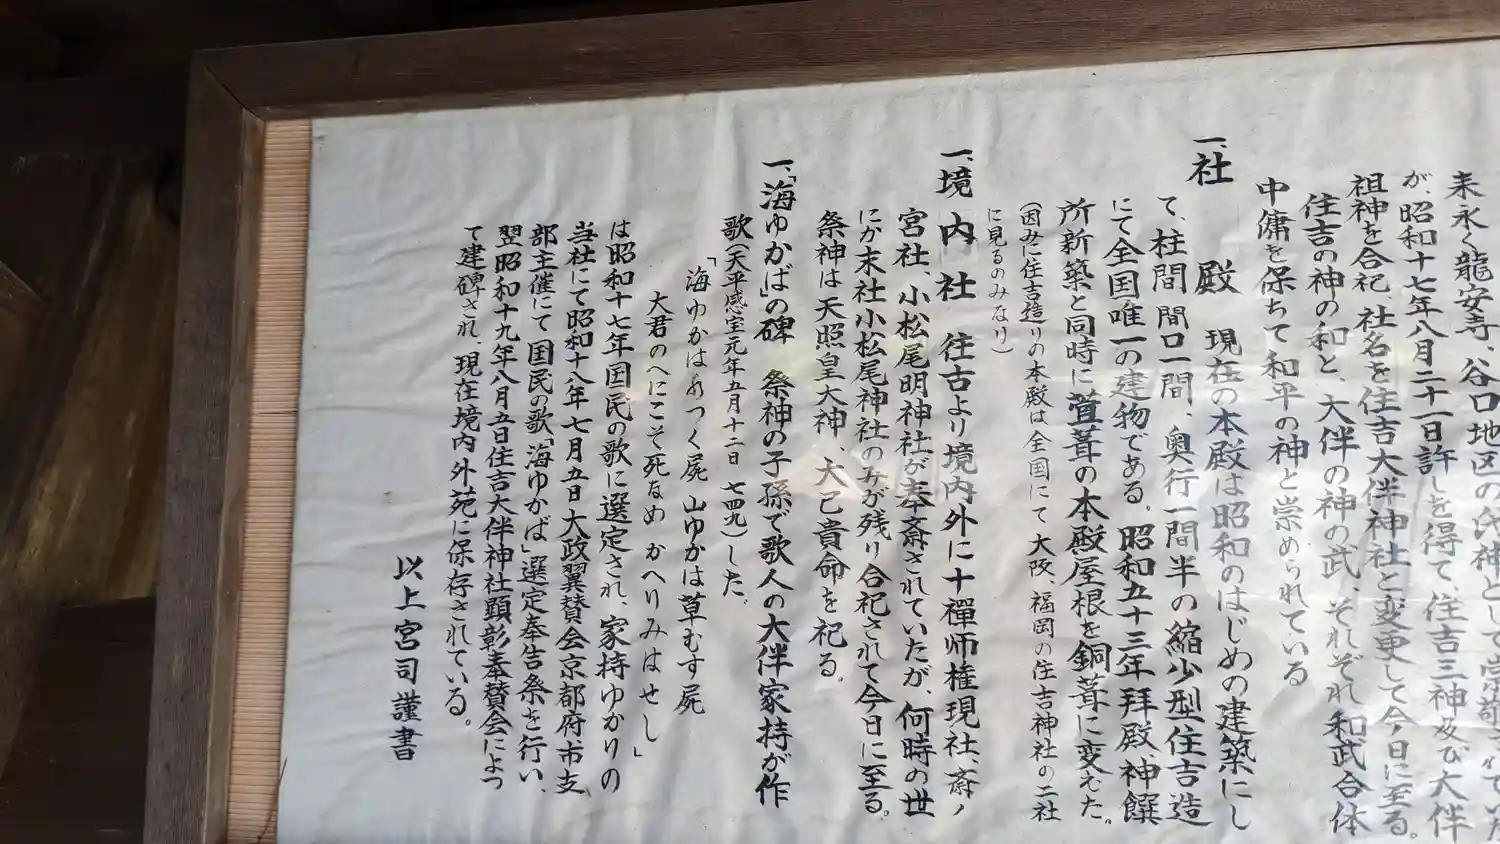 来永く龍安寺、谷口地区の氏神として崇敬されていた
が、昭和十七年八月二十一日許しを得て、住吉三神及び大伴
祖神を合祀、社名を住吉大伴神社と変更して今日に至る。
住吉の神の和と、大伴の神の武、それぞれ和武合体
中庸を保ちて和平の神と崇められている
一、社殿 現在の本殿は昭和のはじめの建築にし
て、柱間 間口一間、奥行一間半の縮少型住吉造
にて全国唯一の建物である。昭和五十三年拝殿、神饌
所新築と同時に萱葺の本殿屋根を銅葺に変えた。
(因みに住吉造りの本殿は全国にて大阪、福岡の住吉神社の二社
に見るのみなり)
一、境内社 往古より境内外に十禅师権現社、斎ノ
宮社、小松尾明神社が奉斎されていたが、何時の世
にか末社小松尾神社のみが残り合祀されて今日に至る。
祭神は天照皇大神、大己貴命を祀る。
一、「海ゆかば」の碑 祭神の子孫で歌人の大伴家持が作
歌(天平感宝元年五月十二日 七四九)した、
「海ゆかは水つく屍 山ゆかは草むす屍
大君のへにこそ死なめ かへりみはせし」
は昭和十七年国民の歌に選定され、家持ゆかりの
当社にて昭和十八年七月五日大政翼賛会京都府市支
部主催にて国民の歌「海ゆかば」選定奉告祭を行い、
翌昭和十九年八月五日住吉大伴神社顕彰奉賛会によっ
て建碑され、現在境内外苑に保存されている。
以上宮司謹書